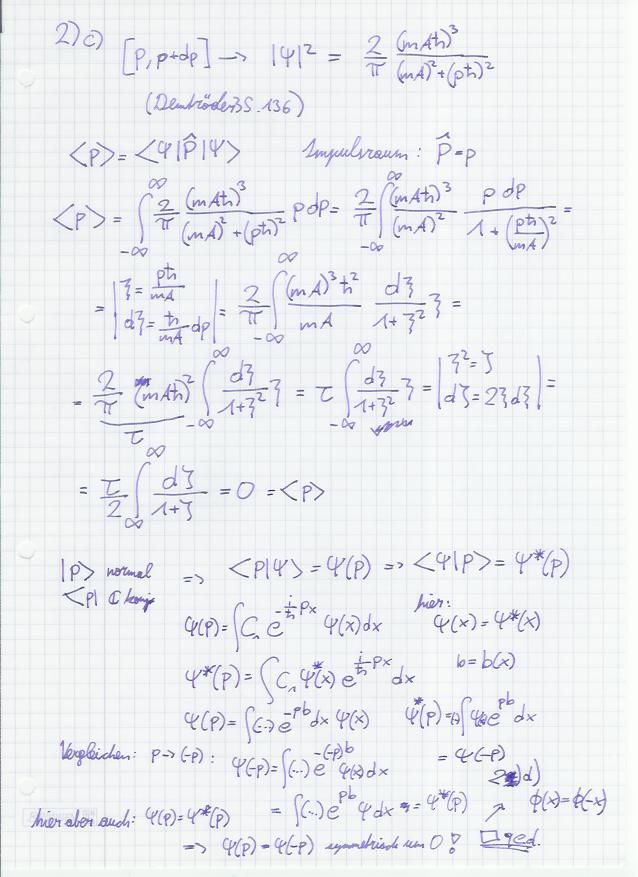 2)c) [p, p+dp] → |Ψ|² = 2/π (mAħ)³/((mA)²+(pħ)²)
(Demtröder3 S. 136)
<p> = <Ψ|P̂|Ψ> Impulsraum: P̂=p
<p> = ∫_{-∞}^{∞} 2/π (mAħ)³/((mA)²+(pħ)²) p dp = 2/π ∫_{-∞}^{∞} (mAħ)³/(mA)² p dp/(1+(pħ/mA)²) =
= |ξ = pħ/mA, dξ = ħ/mA dp| = 2/π ∫_{-∞}^{∞} (mA)³ħ²/mA dξ/(1+ξ²) ξ =
= 2/π (mAħ)² ∫_{-∞}^{∞} dξ/(1+ξ²) ξ = τ ∫_{-∞}^{∞} dξ/(1+ξ²) ξ = |ξ² = ζ, dζ = 2ξdξ| =
τ
= τ/2 ∫_{∞}^{∞} dζ/(1+ζ) = 0 = <p>
|p> normal => <p|Ψ> = Ψ(p) => <Ψ|p> = Ψ*(p)
<p| ℂ konj
Ψ(p) = ∫ C₁ e^{-i/ħ px} Ψ(x) dx hier: Ψ(x) = Ψ*(x)
Ψ*(p) = ∫ C₁ Ψ*(x) e^{i/ħ px} dx b = b(x)
Ψ(p) = ∫(...) e^{-pb} dx Ψ(x) Ψ*(p) = ∫ e^{pb} dx
Vergleichen: p → (-p): Ψ(-p) = ∫(...) e^{-(-p)b} Ψ(x) dx = Ψ(-p)
2)d)
hier aber auch: Ψ(p) = Ψ*(p) = ∫(...) e^{pb} Ψ dx = Ψ*(p) ↗ ϕ(x) = ϕ(-x)
=> Ψ(p) = Ψ(-p) symmetrisch um 0! □ qed.